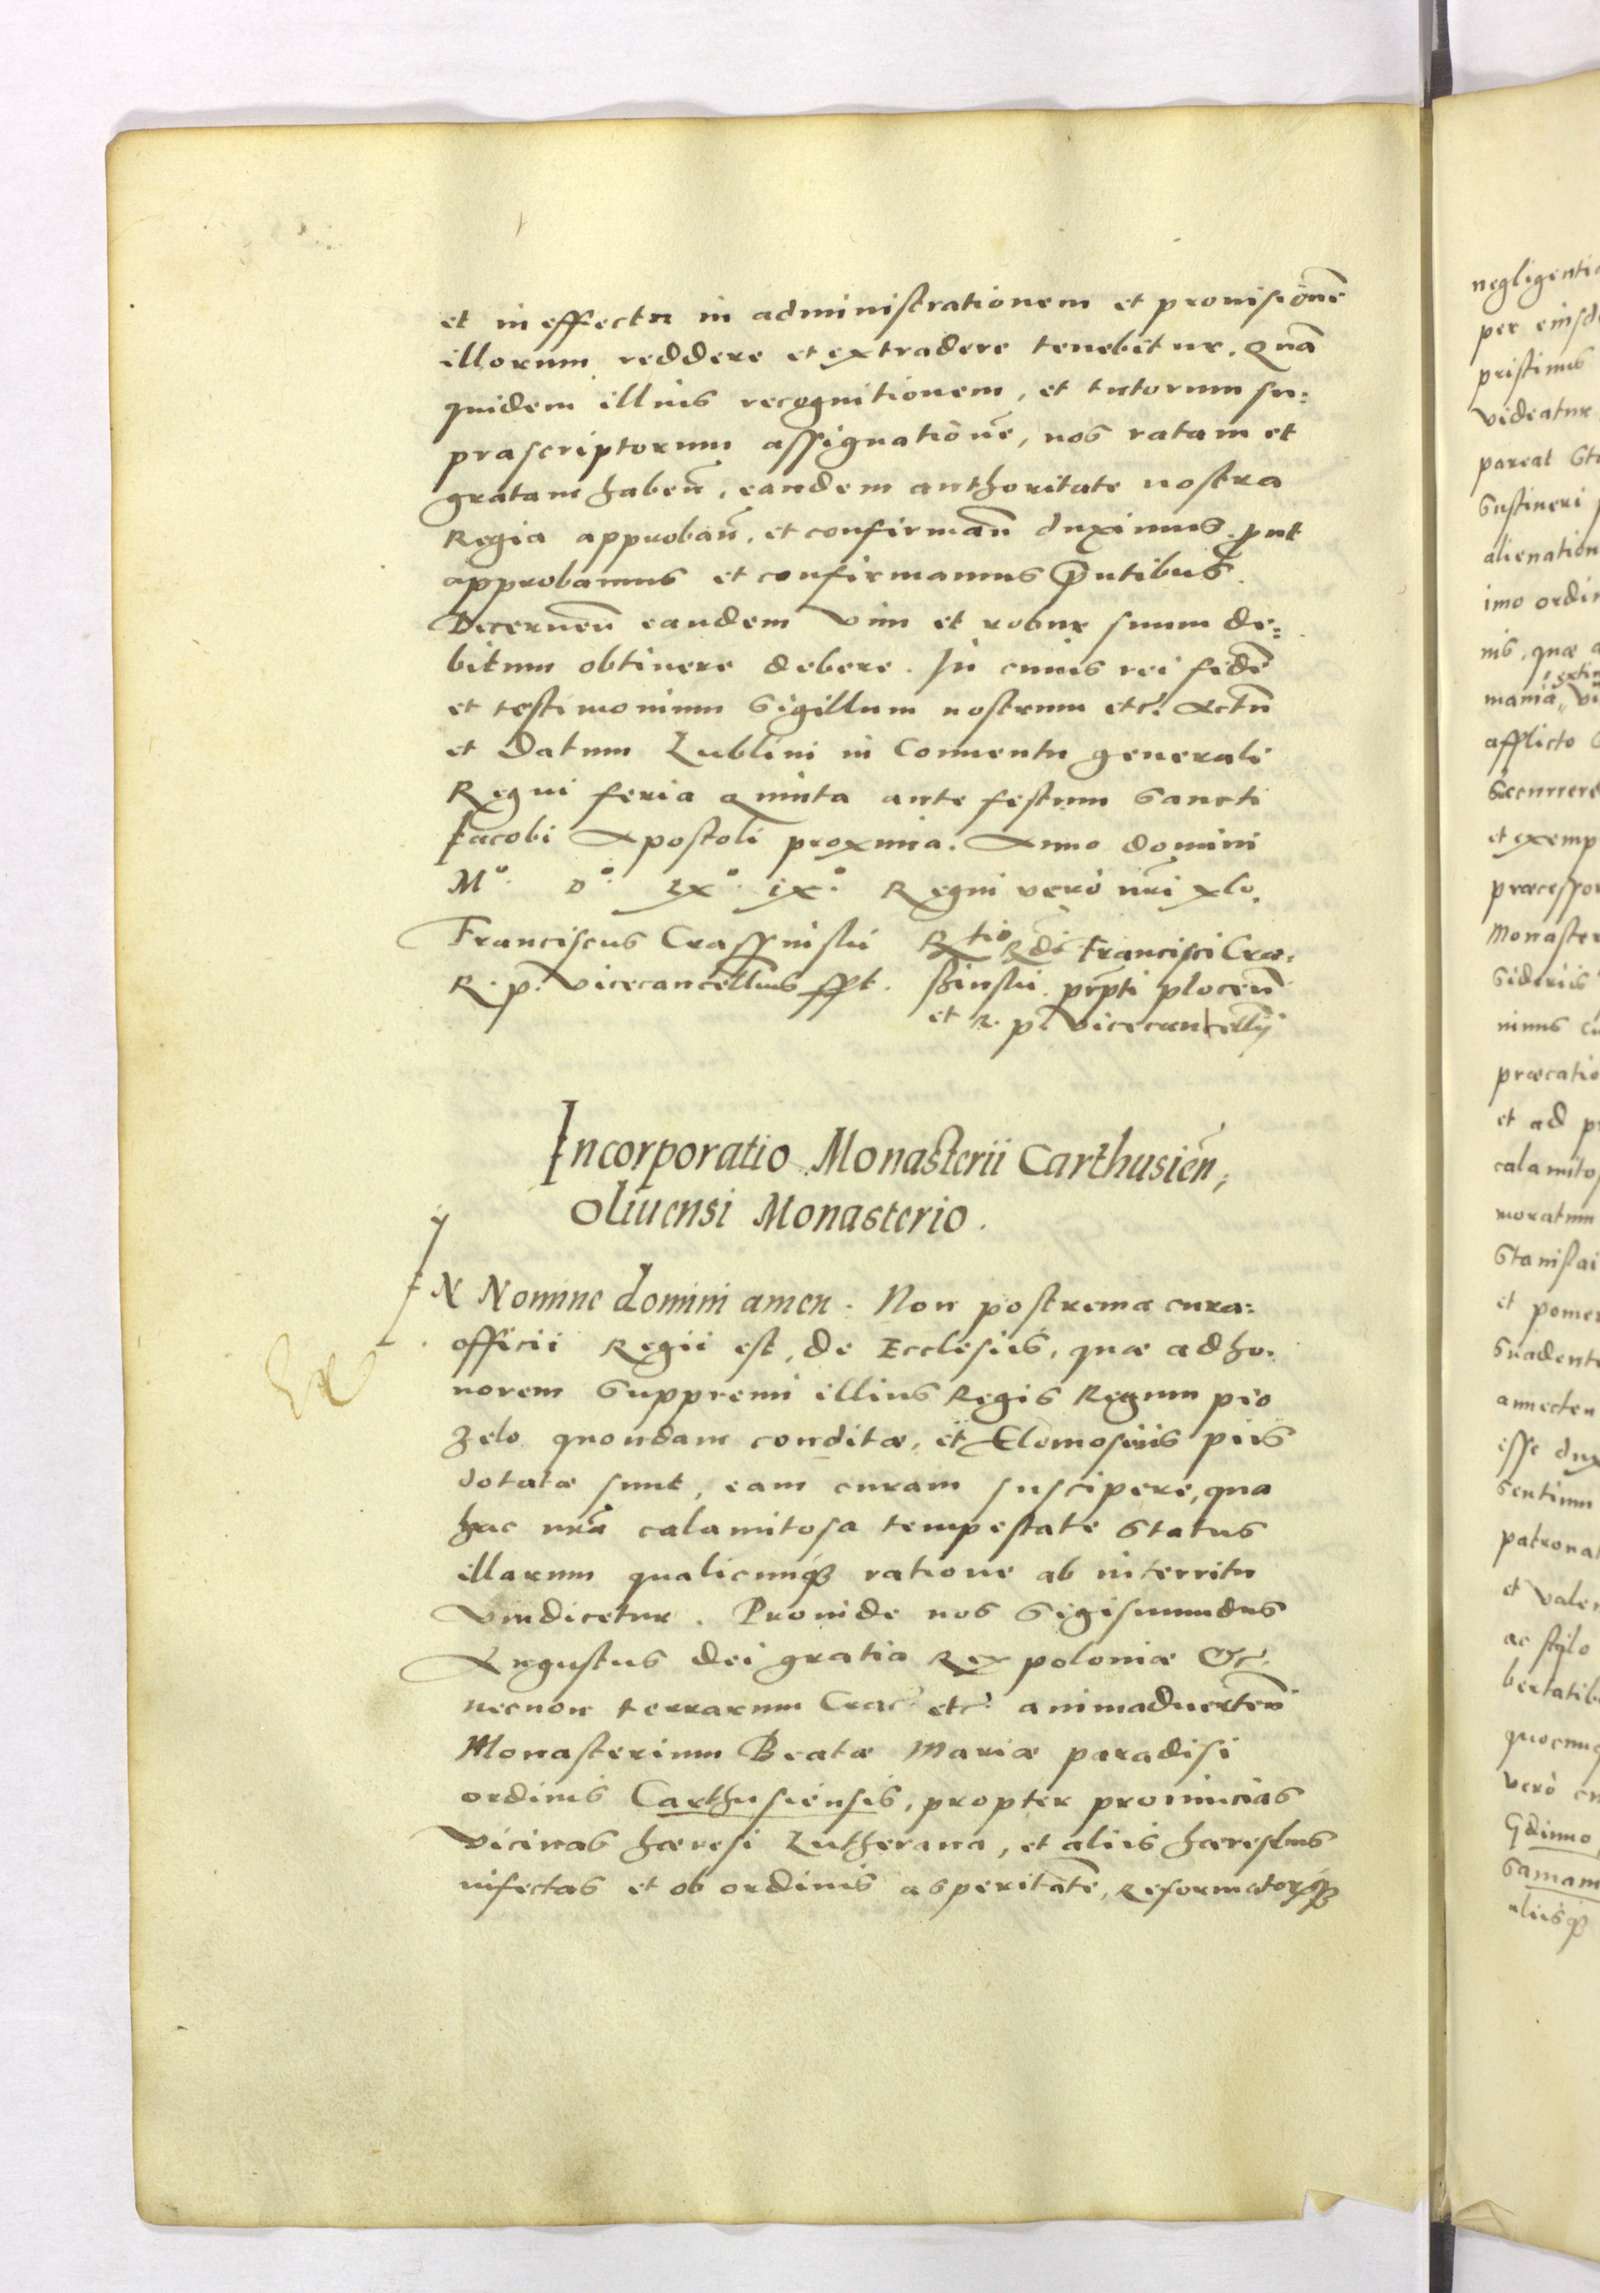 et in effectu in administrationem et prouisionē
illorum reddere et extradere tenebitur. Quā
quidem illius recognitionem, et tutorum su:
prascriptorum assignationē, nos ratam et
gratam habeñ, eandem authoritate nostra
Regia approbañ, et confirmañ duximus, put
approbamus et confirmamus pntibus.
Decerneñ eandem vim et robur suum de:
bitum obtinere debere. In cuius rei fidē
et testimonium Sigillum nostrum etc. Actū
et Datum Lublini in Conuentu generali
Regni feria quinta ante festum Sancti
Jacobi Apostoli proxima. Anno domini
Mo. Do. Lxo. ixo. Regni vero nri xlo.
Franciscus Crassinski Rtio Rdi Francisci Cra:
R. p. vicecancellarius sspt. sinski. prpti ploceñ
et R. p. Vicecancellii
Incorporatio Monasterii Carthusieñ,
Oliuensi Monasterio.
IN Nomine domini amen. Non postrema cura:
officii Regii est, de Ecclesiis, quæ ad ho:
norem Suppremi illius Regis Regum pio
zelo quondam conditæ, et Elemosinis piis
dotatæ sunt, eam curam suscipere, qua
hac nrā calamitosa tempestate Status
illarum qualicunq3 ratione ab interritu
vindicetur. Prouide nos Sigismundus
Augustus dei gratia Rex poloniæ &c.
necnon terrarum Crac. etc. animaduerteñ
Monasterium Beatæ Mariæ paradisi
ordinis Carthusiensis, propter prouincias
vicinas hæresi Lutherana, et aliis hæresibus
infectas et ob ordinis asperitatē, Reformatorq3
negligentia
per eiusd
pristinus
videatur
pareat
Sustineri
alienation
imo ordin
nis, quæ
mania
afflicto
Succurrere
et exemp
præcessor
Monaster
sideriis
nimus
præcatio
et ad p
calamitos
moratum
Stanislai
et pomer
Suadente
annecten
esse dux
Sentium
patronat
et valer
ac stylo
bertatib
quocunq
vero
Gdinno
Samam
aliisq3